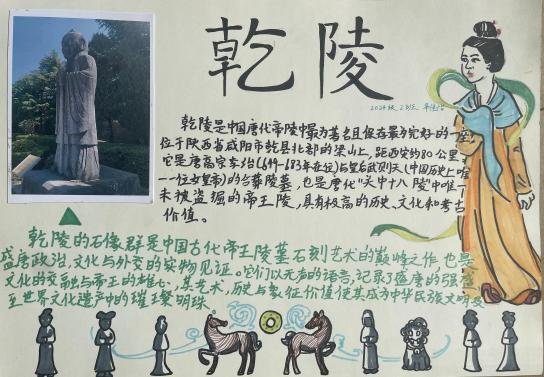 乾陵
2024级 2班
乾陵是中国唐代帝陵中最为著名且保存最为完好的一座
位于陕西省咸阳市乾县北部的梁山上，距西安约80公里，
它是唐高宗李治(649-683年在位)与皇后武则天(中国历史上唯
一一位女皇帝)的合葬陵墓，也是唐代"关中十八陵"中唯一
未被盗掘的帝王陵，具有极高的历史、文化和考古
价值。
乾陵的石像群是中国古代帝王陵墓石刻艺术的巅峰之作，也是
盛唐政治，文化与外交的实物见证。它们以无声的语言，记录了盛唐的强盛
文化的交融与帝王的雄心，其艺术，历史与象征价值使其成为中华民族文明
至世界文化遗产中的璀璨明珠